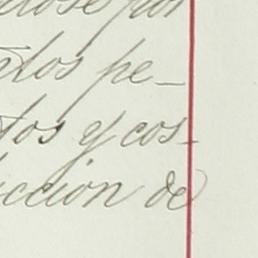 dose por
los pe-
tos y cos-
ccion de